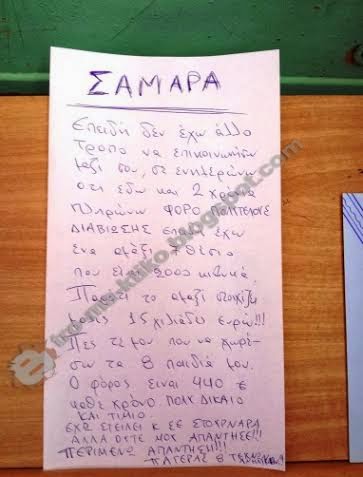 ΣΑΜΑΡΑ
Επειδή δεν έχω άλλο
τροπο να επικοινωνήσω
μαζι σου, σε ενημερώνω
οτι εδω και 2 χρόνια
πληρώνω ΦΟΡΟ ΠΟΛΥΤΕΛΟΥΣ
ΔΙΑΒΙΩΣΗΣ επειδή έχω
ενα αμάξι 7 θέσιο
που είναι 2000 κυβικά.
το αμαξι στοιχιζει
μολις 15 χιλιάδες ευρώ!!!
Πες τε μου που να χωρέ-
σω τα 8 παιδιά μου.
Ο φόρος ειναι 440 €
καθε χρόνο. ΠΟΛΥ ΔΙΚΑΙΟ
ΚΑΙ ΤΙΜΙΟ.
ΕΧΩ ΣΤΕΙΛΕΙ Κ ΣΕ ΣΤΟΥΡΝΑΡΑ
ΑΛΛΑ ΟΥΤΕ ΜΟΥ ΑΠΑΝΤΗΣΕ!!!
ΠΕΡΙΜΕΝΩ ΑΠΑΝΤΗΣΗ!!
ΠΑΤΕΡΑΣ 8 ΤΕΚΝΩΝ